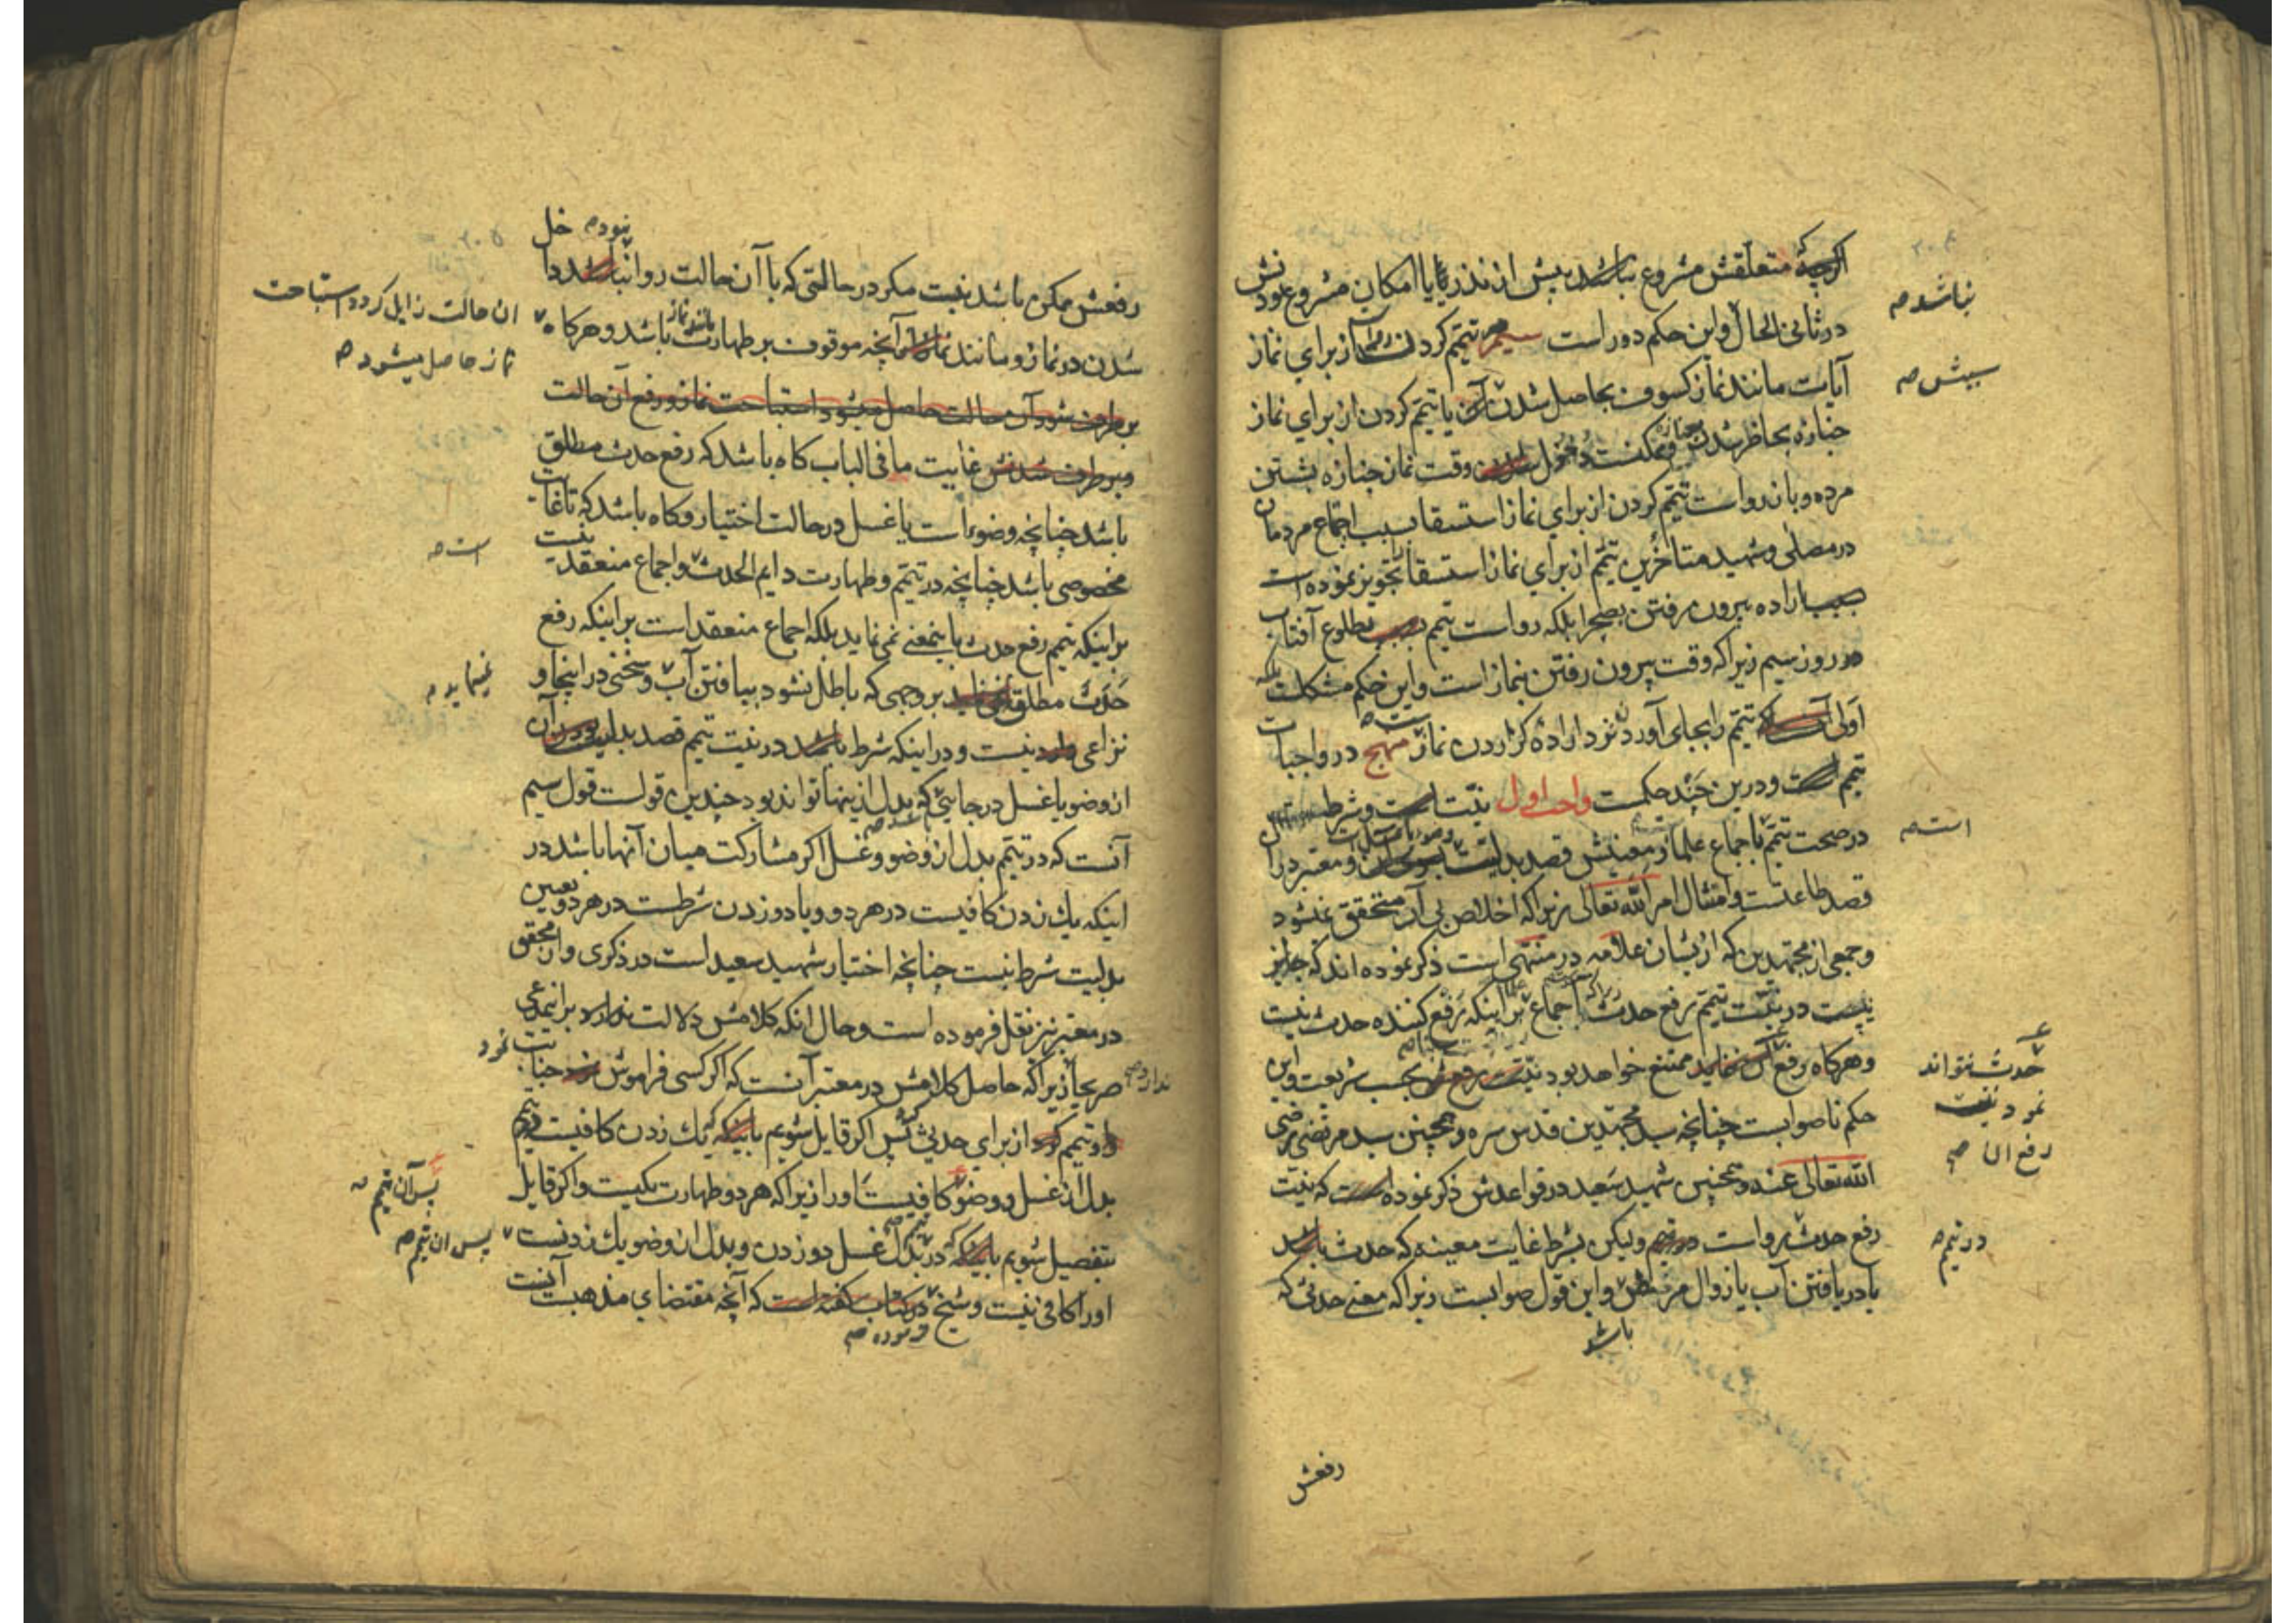 اگرچه که متعلقش مشروع نباشد پیش از نذر یا با امکان مشروع بودنش
نباشد صح
در ثانی الحال و این حکم دور است سیم تیمم کردن از برای نماز
سببش صح
آیات مانند نماز کسوف بحاصل شدن آن یا تیمم کردن از برای نماز
جنازه بحاضر شدن و ممکنست دخول وقت نماز جنازه بشستن
مرده و باز رواست تیمم کردن از برای نماز استسقا بسبب اجتماع مردمان
در مصلی و شهید متاخرین تیمم از برای نماز استسقا تجویز نموده است
بسبب اراده بیرون رفتن بصحرا بلکه رواست تیمم بسبب طلوع آفتاب
در روز سیم زیرا که وقت بیرون رفتن بنماز است و این حکم مشکلست بلکه
اولی آنست که تیمم را بجای آورد نزد اراده گزاردن نماز منهج در واجبات
تیمم است و درین چند حکمست واجب اول نیت است و شرط است
است صح
در صحت تیمم باجماع علما قصد بدلیت و معتبر در آن
قصد طاعتست و امتثال امر الله تعالی زیرا که اخلاص بی آن متحقق نمیشود
و جمعی از مجتهدین که ازیشان علامه در منتهی است ذکر نموده اند که جایز
نیست در نیت تیمم رفع حدث زیراکه اجماع بر اینکه رفع کننده حدث نیست
و هرگاه رفع آن ننماید ممتنع خواهد بود نیت رفعش بحسب شریعت و این
حدث نتواند
نمود نیت
رفع ان صح
حکم ناصوابست چنانچه سید مجتهدین قدس سره و همچنین سید مرتضی رضی
الله تعالی عنه و همچنین شهید سعید در قواعدش ذکر نموده است که نیت
رفع حدث رواست در تیمم ولیکن بشرط غایت معینه که حدث باشد
در تیمم صح
یا دریافتن آب یا زوال مرض و این قول صوابست زیرا که معنی حدثی که
باشد
رفعش
نبود صح خل
رفعش ممکن باشد نیست مگر در حالتی که با آن حالت روا نباشد دا
شدن در نماز و مانند نماز از آنچه موقوف بر طهارت باشد و هرگاه
ان حالت زایل گردد استباحت
نماز حاصل میشود صح
بر طرف شود آن حالت حاصل میشود استباحت نماز و رفع آن حالت
و برطرف شدنش غایت ما فی الباب گاه باشد که رفع حدث مطلق
باشد چنانچه وضوء است یا غسل در حالت اختیار و گاه باشد که تا غایت
مخصوصی باشد چنانچه در تیمم و طهارت دایم الحدث و اجماع منعقد نیست
است صح
بر اینکه تیمم رفع حدث باینمعنی نمی نماید بلکه اجماع منعقد است بر اینکه رفع
حدث مطلق نمی نماید بر وجهی که باطل نشود بیافتن آب و سخنی در اینجا و
نمینماید صح
نزاعی نیست و در اینکه شرط باشد در نیت تیمم قصد بدلیت بودن آن
از وضو یا غسل در جایی که بدل ازینها تواند بود چندین قولست قول سیم
آنست که در تیمم بدل از وضو و غسل اگر مشارکت میان آنها باشد در
اینکه یك زدن کافیست در هر دو و یا دو زدن شرطست در هر دو تعیین
بدلیت شرط نیست چنانچه اختیار شهید سعید است در ذکری و از محقق
در معتبر نیز نقل فرموده است و حال انکه کلامش دلالت ندارد بر اینمدعی
ندارد صح
صریحا زیرا که حاصل کلامش در معتبر آنست که اگر کسی فراموش نمود جنابت
و تیمم کرد از برای حدثی پس اگر قایل شویم باینکه یك زدن کافیست در تیمم
بدل از غسل و وضو کافیست اورا زیرا که هر دو طهارت یکیست و اگر قایل
پس آن تیمم صح
بتفصیل شویم باینکه در بدل غسل دو زدن و بدل از وضو یك زدنست
پس ان تیمم صح
اورا کافی نیست و شیخ در کتاب گفته است که آنچه مقتضای مذهبست آنست
فرموده صح